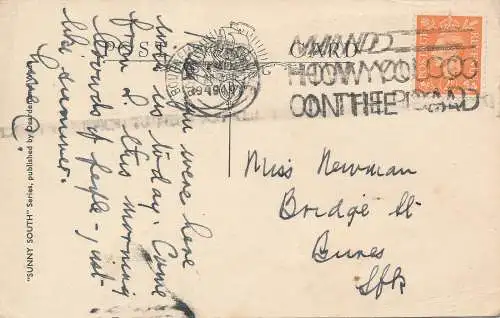 POST CARD
MIND
HOW YOU GO
ON THE ROAD
you were here
with us today. Came
from L. this morning
Crowds of people - just
like summer.
Miss Newman
Bridge St
Bures
Sfk
"SUNNY SOUTH" Series, published by Dearden